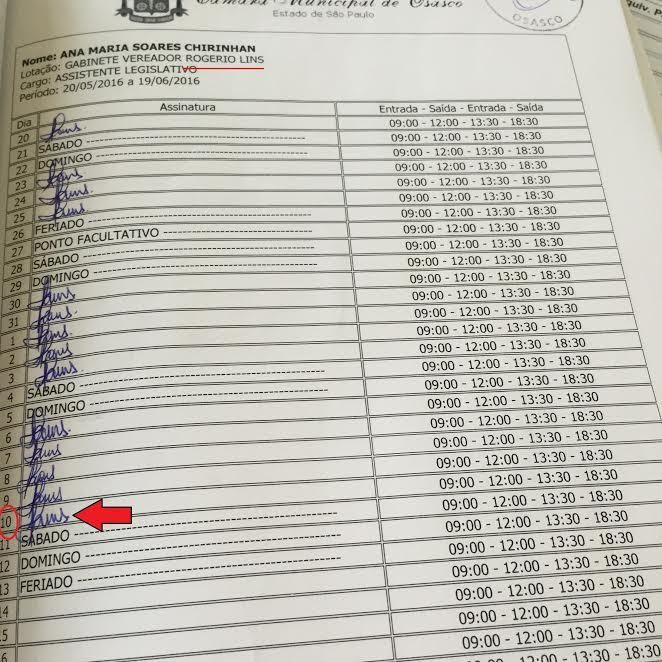 Câmara Municipal de Osasco
Estado de São Paulo
OSASCO
Nome: ANA MARIA SOARES CHIRINHAN
Lotação: GABINETE VEREADOR ROGERIO LINS
Cargo: ASSISTENTE LEGISLATIVO
Período: 20/05/2016 a 19/06/2016
Dia Assinatura Entrada - Saída - Entrada - Saída
20 09:00 - 12:00 - 13:30 - 18:30
21 SÁBADO 09:00 - 12:00 - 13:30 - 18:30
22 DOMINGO 09:00 - 12:00 - 13:30 - 18:30
23 09:00 - 12:00 - 13:30 - 18:30
24 09:00 - 12:00 - 13:30 - 18:30
25 09:00 - 12:00 - 13:30 - 18:30
26 FERIADO 09:00 - 12:00 - 13:30 - 18:30
27 PONTO FACULTATIVO 09:00 - 12:00 - 13:30 - 18:30
28 SÁBADO 09:00 - 12:00 - 13:30 - 18:30
29 DOMINGO 09:00 - 12:00 - 13:30 - 18:30
30 09:00 - 12:00 - 13:30 - 18:30
31 09:00 - 12:00 - 13:30 - 18:30
1 09:00 - 12:00 - 13:30 - 18:30
2 09:00 - 12:00 - 13:30 - 18:30
3 09:00 - 12:00 - 13:30 - 18:30
4 SÁBADO 09:00 - 12:00 - 13:30 - 18:30
5 DOMINGO 09:00 - 12:00 - 13:30 - 18:30
6 09:00 - 12:00 - 13:30 - 18:30
7 09:00 - 12:00 - 13:30 - 18:30
8 09:00 - 12:00 - 13:30 - 18:30
9 09:00 - 12:00 - 13:30 - 18:30
10 09:00 - 12:00 - 13:30 - 18:30
11 SÁBADO 09:00 - 12:00 - 13:30 - 18:30
12 DOMINGO 09:00 - 12:00 - 13:30 - 18:30
13 FERIADO 09:00 - 12:00 - 13:30 - 18:30
14 09:00 - 12:00 - 13:30 - 18:30